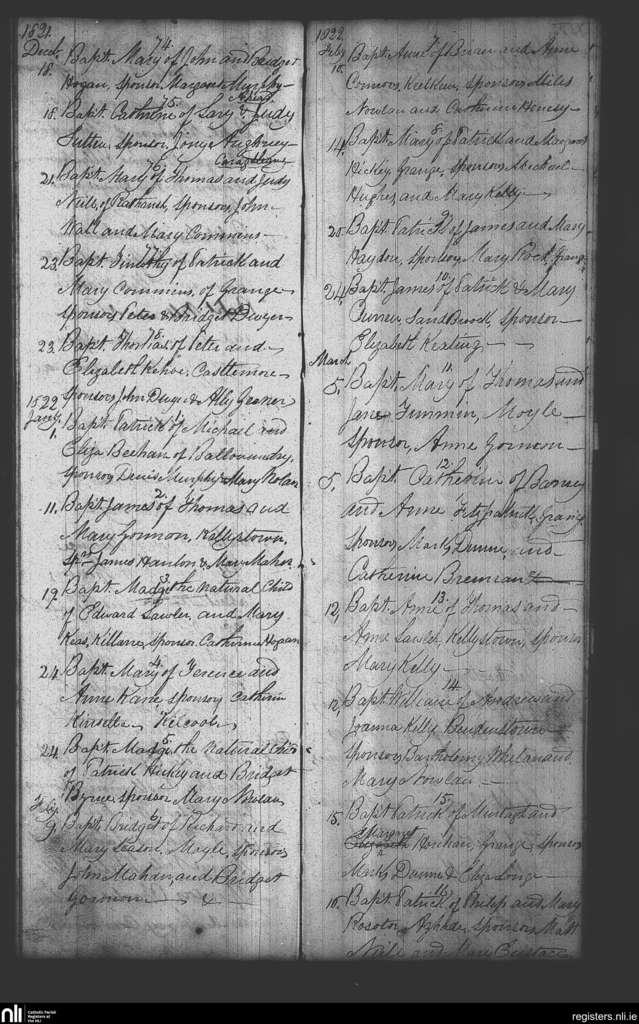 1821.
Decr.
74
18. Bapt. Mary of John and Bridget
Hogan, sponsor Margaret Murphy
75
18. Bapt. Catherine of Lary & Judy
sponsor,
76
21. Bapt. Mary of Thomas and Judy
Neill, of Rathanna, sponsors John
Wall and Mary Commins
77
23. Bapt. Timothy of Patrick and
Mary Commins, of Grange
sponsors Peter & Bridget Dwyer
78
23. Bapt. Thomas of Peter and
Elizabeth Kehoe, Castlemore
sponsors John & Ally
1822
Jany. 1
1. Bapt. Patrick of Michael and
Eliza of
sponsors Denis Murphy & Mary Nolan
2.
11. Bapt. James of Thomas and
Mary Gormon, Kellystown,
sprs James Hanlon & Mary Maher
3.
19. Bapt. Madge the natural Child
of Edward Lawler, and Mary
Killane, sponsor Catherine Hogan
4.
24. Bapt. Mary of Terence and
Anne Kane sponsor Catherine
Kinsella Kilcoole
5.
24. Bapt. Madge the natural Child
of Patrick Hickey and Bridget
Byrne, sponsor Mary Nowlan
Feby. 6
9. Bapt. Bridget of Richard and
Mary Moyle, sponsors
John Mahon, and Bridget
Gormon &
1822.
Feby. 7
10. Bapt. Anne of Brian and Anne
Connors, sponsors Miles
Nowlan and Catherine
8
14. Bapt. Mary of Patrick and Margaret
Hickey, Grange, sponsors Michael
Hughes and Mary Kelly
9
20. Bapt. Patrick of James and Mary
Haydon, sponsor, Mary Grange
10
24. Bapt. James of Patrick & Mary
Curren, Sandbrook, sponsor
Elizabeth Keating
March
11
5. Bapt. Mary of Thomas and
Jane Timmin, Moyle
sponsor, Anne Gormon
12
8. Bapt. Catherine of Barney
and Anne Fitzpatrick, Grange
sponsors Mark Dunne, and
Catherine Brennan
13
12. Bapt. Anne of Thomas and
Anne Lawler, Kellystown, sponsor
Mary Kelly
14
12. Bapt. William of Andrew and
Joanna Kelly
sponsors Bartholomy Whelan and
Mary Nowlan
15
15. Bapt. Patrick of Murtagh and
Margret
Grange, sponsors
Mark Dunne & Eliza Long
16
16. Bapt. Patrick of Philip and Mary
sponsors Matt
Neill and Mary Eustace
nli Catholic Parish Registers at the NLI
registers.nli.ie